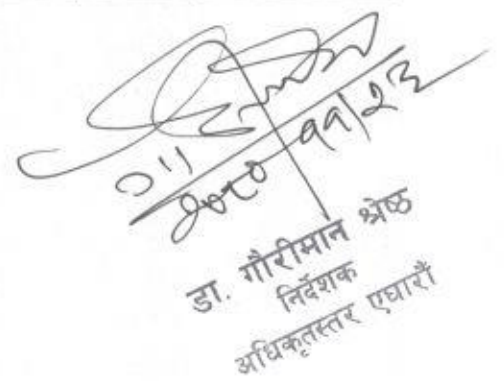 २०८० ११/२३
डा. गौरीमान श्रेष्ठ
निर्देशक
अधिकृतस्तर एघारौं